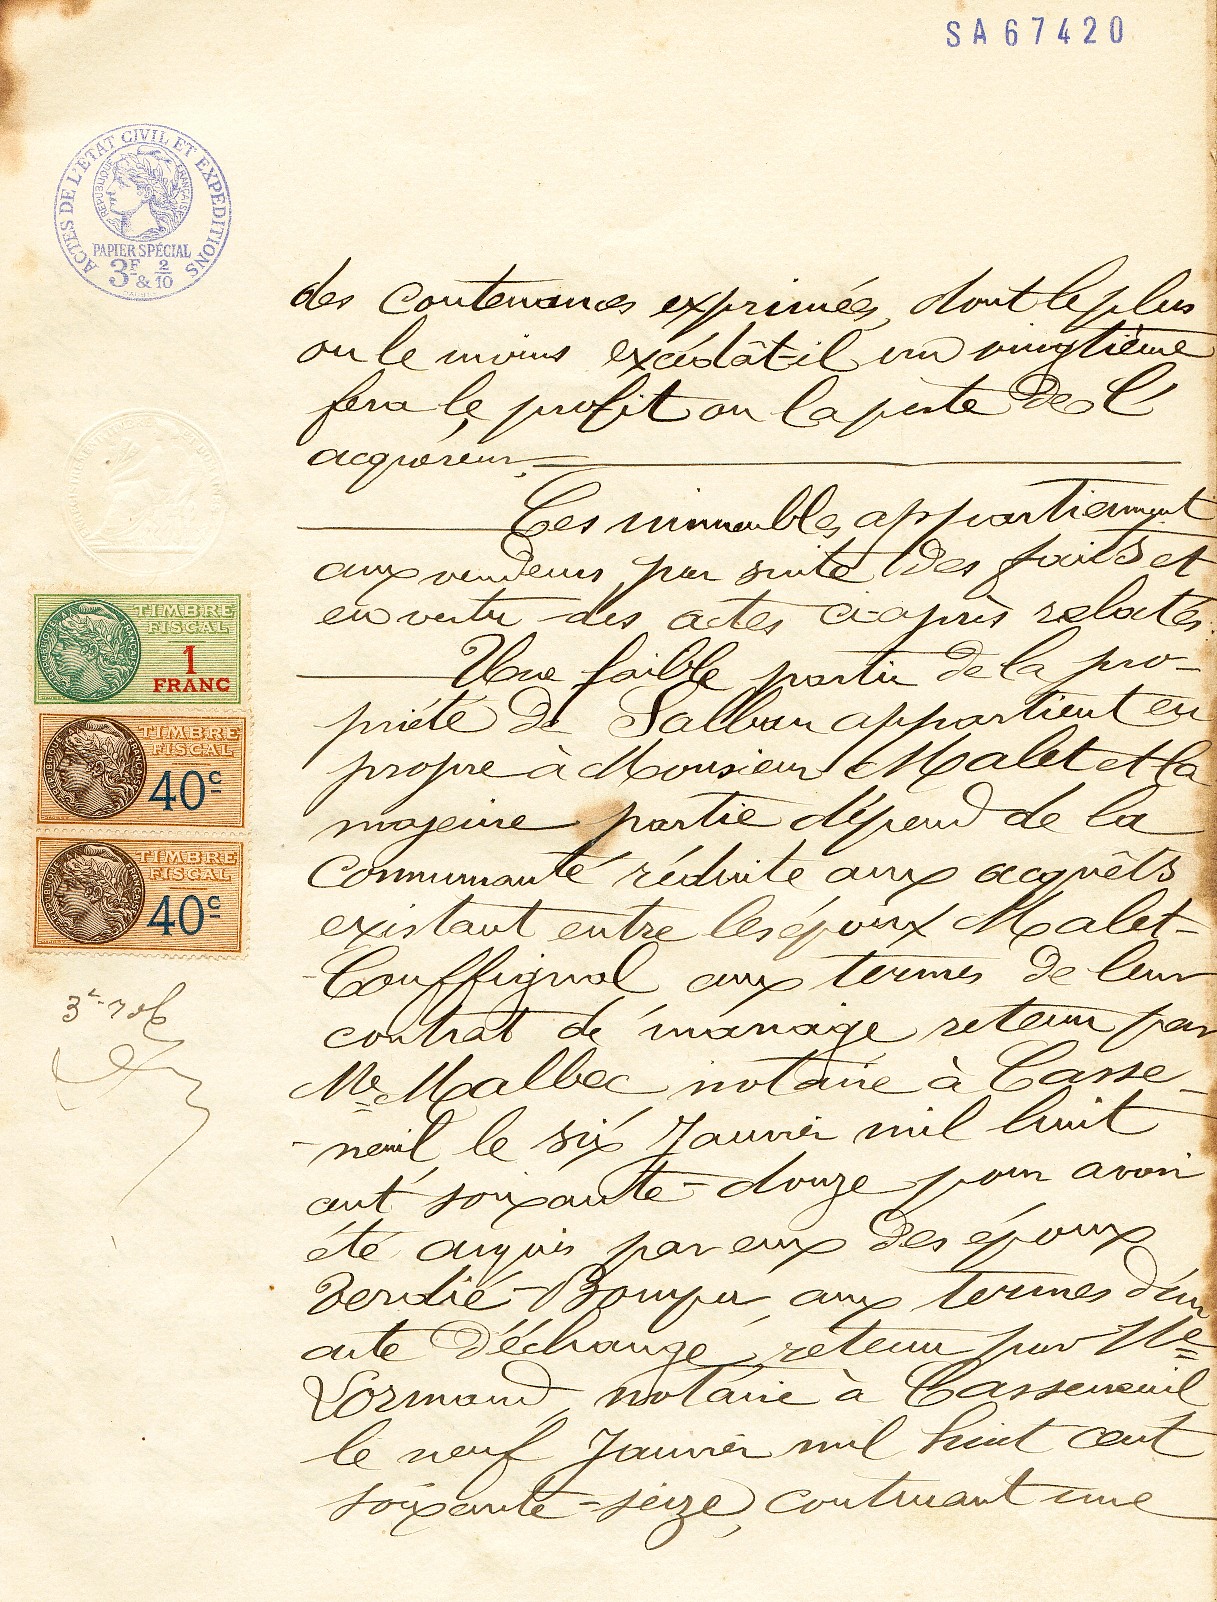 SA67420
ACTES DE L'ÉTAT CIVIL ET EXPÉDITIONS
RÉPUBLIQUE FRANÇAISE
PAPIER SPÉCIAL
3F & 2/10
des contenances exprimées, dont le plus
ou le moins excédât-il un vingtième
fera le profit ou la perte de l'
acquéreur.
Ces immeubles appartiennent
aux vendeurs par suite des faits et
en vertu des actes ci-après relatés.
Une faible partie de la pro-
priété de Salban appartient en
propre à Monsieur Malet et la
majeure partie dépend de la
communauté réduite aux acquêts
existant entre les époux Malet-
-Couffignal aux termes de leur
contrat de mariage retenu par
Me Malbec notaire à Casse-
-neuil le six Janvier mil huit
cent soixante-douze pour avoir
été acquis par eux des époux
Verdié-Bompa, aux termes d'un
acte d'échange, retenu par Me
Lormand, notaire à Casseneuil
le neuf Janvier mil huit cent
soixante-seize, contenant une
TIMBRE
FISCAL
1
FRANC
TIMBRE
FISCAL
40c
TIMBRE
FISCAL
40c